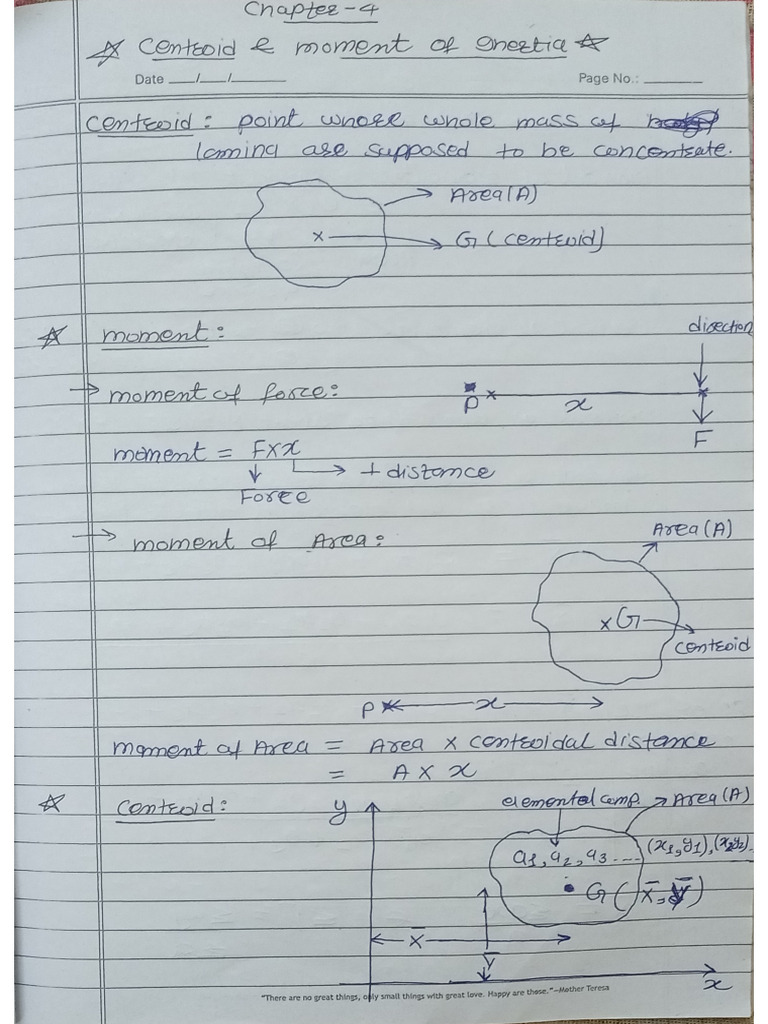 Chapter-4
☆ Centroid & moment of Inertia ☆
Date ___/___/______ Page No.: ______
Centroid: point whose whole mass of
laming are supposed to be concentrate.
Area (A)
G (centroid)
☆ moment:
direction
→ moment of force:
P x
F
moment = F×x
⊥ distance
Force
→ moment of Area:
Area (A)
G
centroid
P x
moment of Area = Area × centroidal distance
= A × x
☆ Centroid:
y elemental comp. Area (A)
a1, a2, a3.... (x1, y1), (x2 y2)
G (x̄, ȳ)
x̄
ȳ
x
"There are no great things, only small things with great love. Happy are those."–Mother Teresa